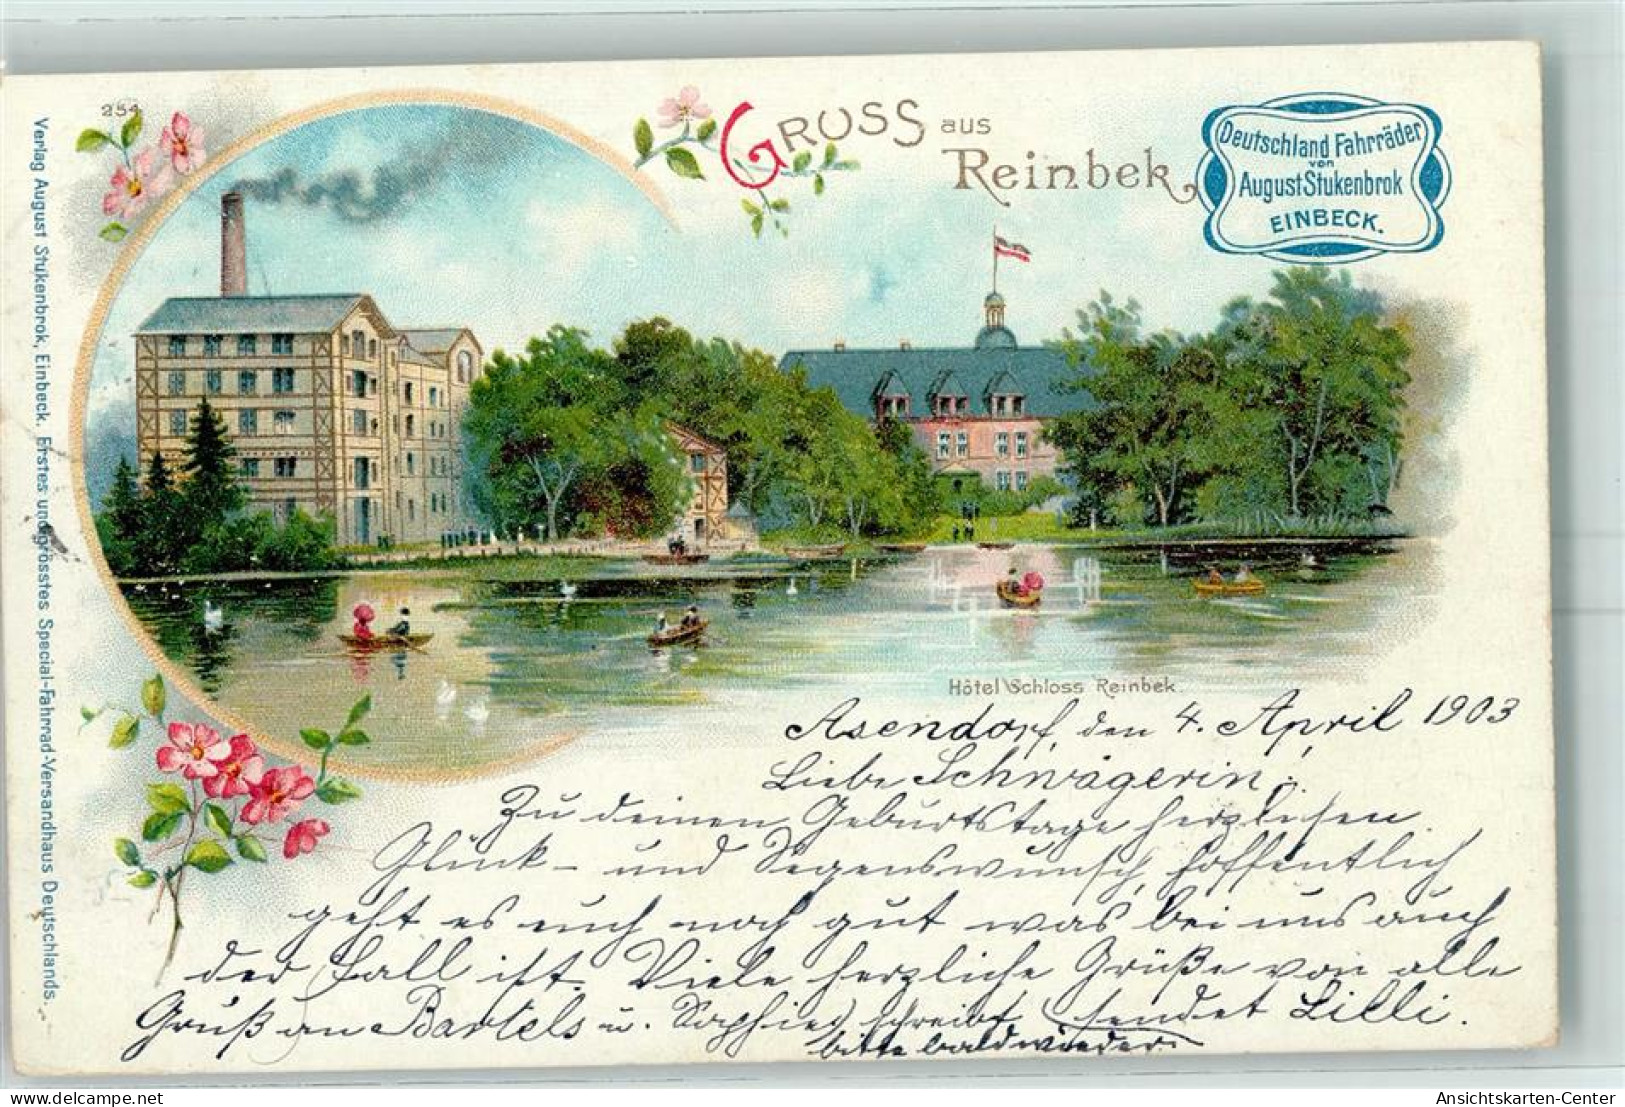 254
Gruss aus
Reinbek
Deutschland Fahrräder
von
August Stukenbrok
EINBECK.
Verlag August Stukenbrok, Einbeck. Erstes und grösstes Special-Fahrrad-Versandhaus Deutschlands.
Hôtel Schloss Reinbek.
Asendorf, den 4. April 1903
Liebe Schwägerin!
Zu deinem Geburtstage herzlichen
Glück- und Segenswunsch, hoffentlich
geht es euch noch gut was bei uns auch
der Fall ist. Viele herzliche Grüße von alle
Gruß an Bartels u. Sophie, schreibt sendet Lilli.
bitte bald wieder.
Ansichtskarten-Center
http://www.ansichtskarten-center.de/